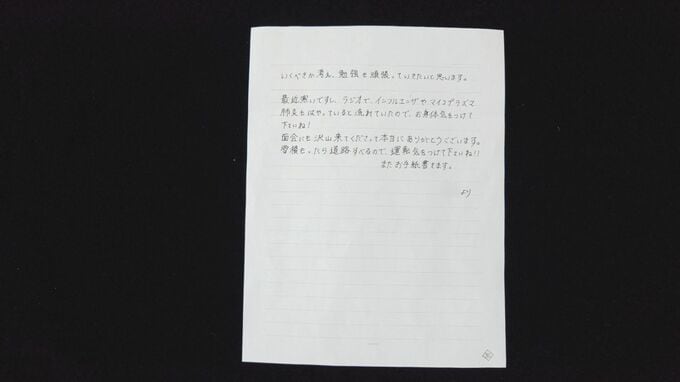 いくべきか考え、勉強も頑張っていきたいと思います。
最近寒いですし、ラジオで、インフルエンザや、マイコプラズマ
肺炎もはやっていると流れていたので、お身体気をつけて
下さいね!
面会にも沢山来てくださって本当にありがとうございます。
雪積もったら道路すべるので、運転気をつけて下さいね!!
またお手紙書きます。
より